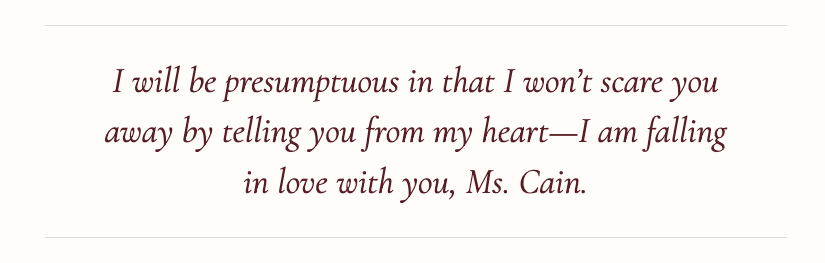 I will be presumptuous in that I won’t scare you
away by telling you from my heart—I am falling
in love with you, Ms. Cain.